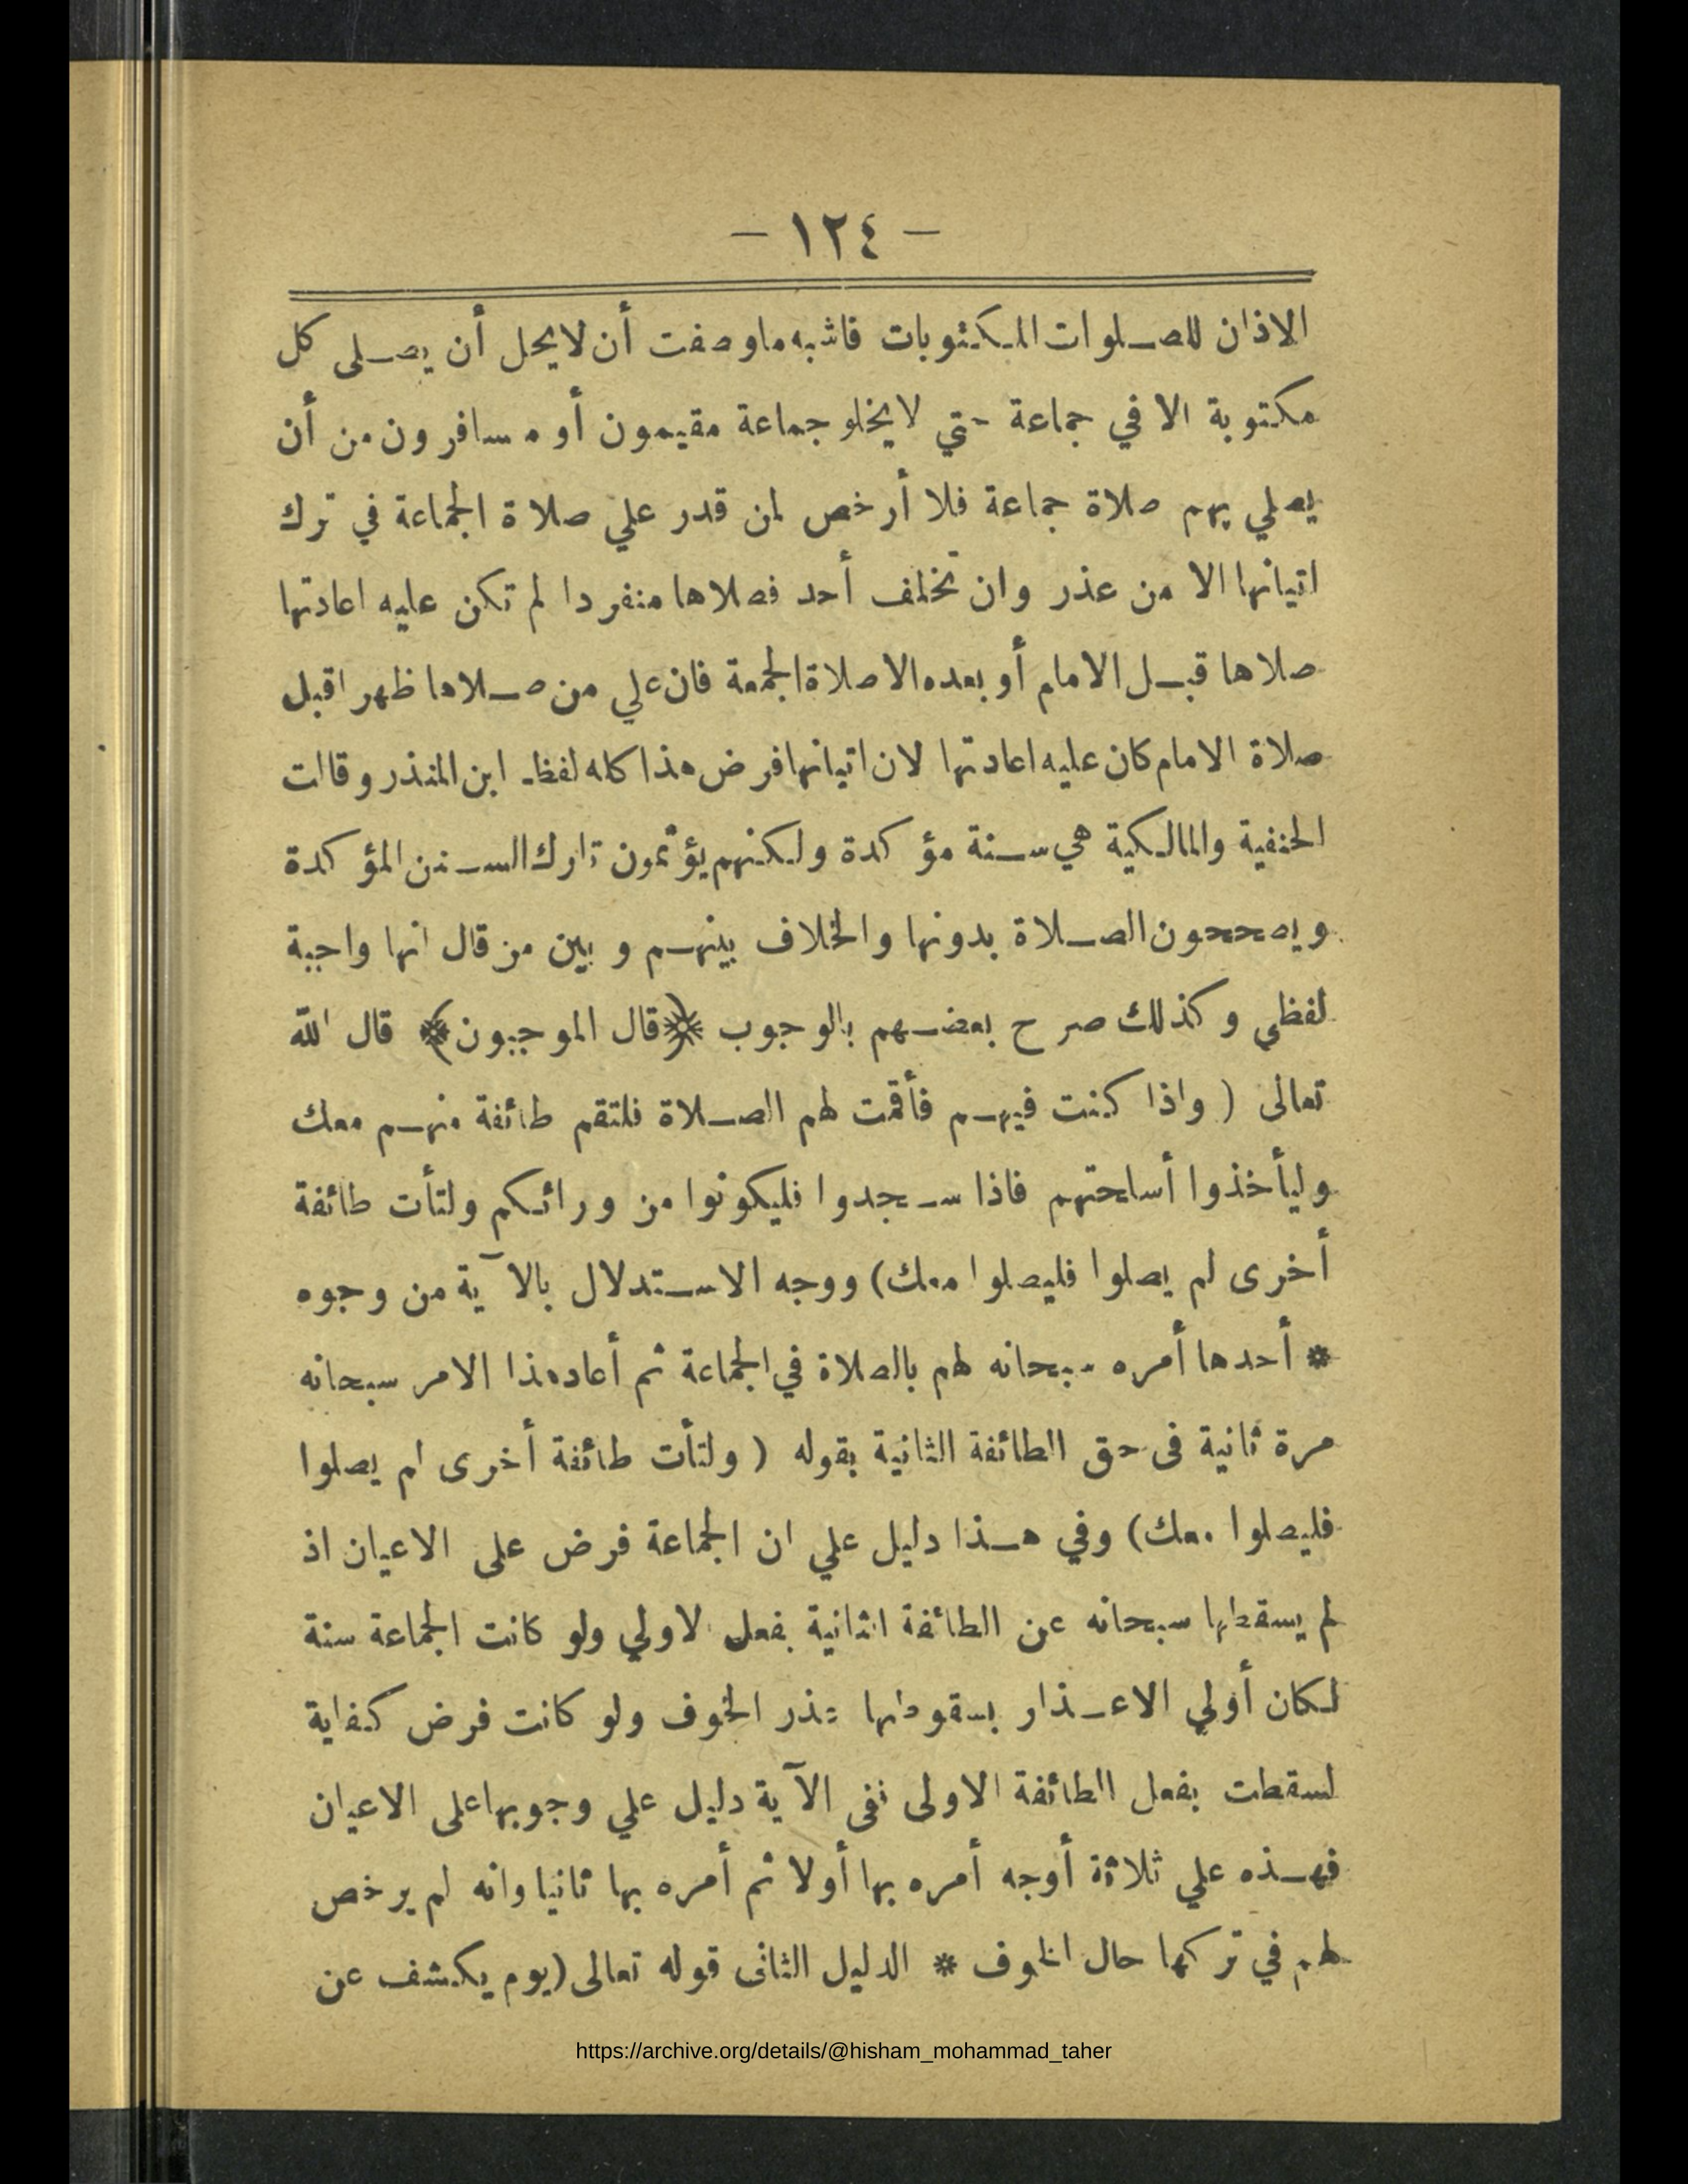 - ١٢٤ -
الاذان للصلوات المكتوبات فاشبه ماوصفت أن لا يحل أن يصلى كل
مكتوبة الا في جماعة حتي لا يخلو جماعة مقيمون أو مسافرون من أن
يصلي بهم صلاة جماعة فلا أرخص لمن قدر علي صلاة الجماعة في ترك
اتيانها الا من عذر وان تخلف أحد فصلاها منفردا لم تكن عليه اعادتها
صلاها قبل الامام أو بعده الا صلاة الجمعة فان علي من صلاها ظهرا قبل
صلاة الامام كان عليه اعادتها لان اتيانها فرض هذا كله لفظ ابن المنذر وقالت
الحنفية والمالكية هي سنة مؤكدة ولكنهم يؤثمون تارك السنن المؤكدة
ويصححون الصلاة بدونها والخلاف بينهم و بين من قال انها واجبة
لفظي وكذلك صرح بعضهم بالوجوب ﴿قال الموجبون﴾ قال الله
تعالى ( واذا كنت فيهم فأقمت لهم الصلاة فلتقم طائفة منهم معك
وليأخذوا أسلحتهم فاذا سجدوا فليكونوا من ورائكم ولتأت طائفة
أخرى لم يصلوا فليصلوا معك) ووجه الاستدلال بالآية من وجوه
* أحدها أمره سبحانه لهم بالصلاة في الجماعة ثم أعاد هذا الامر سبحانه
مرة ثانية فى حق الطائفة الثانية بقوله ( ولتأت طائفة أخرى لم يصلوا
فليصلوا معك) وفي هذا دليل علي ان الجماعة فرض على الاعيان اذ
لم يسقطها سبحانه عن الطائفة الثانية بفعل الاولي ولو كانت الجماعة سنة
لكان أولي الاعذار بسقوطها عذر الخوف ولو كانت فرض كفاية
لسقطت بفعل الطائفة الاولى ففى الآية دليل علي وجوبها على الاعيان
فهذه علي ثلاثة أوجه أمره بها أولا ثم أمره بها ثانيا وانه لم يرخص
لهم في تركها حال الخوف * الدليل الثانى قوله تعالى (يوم يكشف عن
https://archive.org/details/@hisham_mohammad_taher